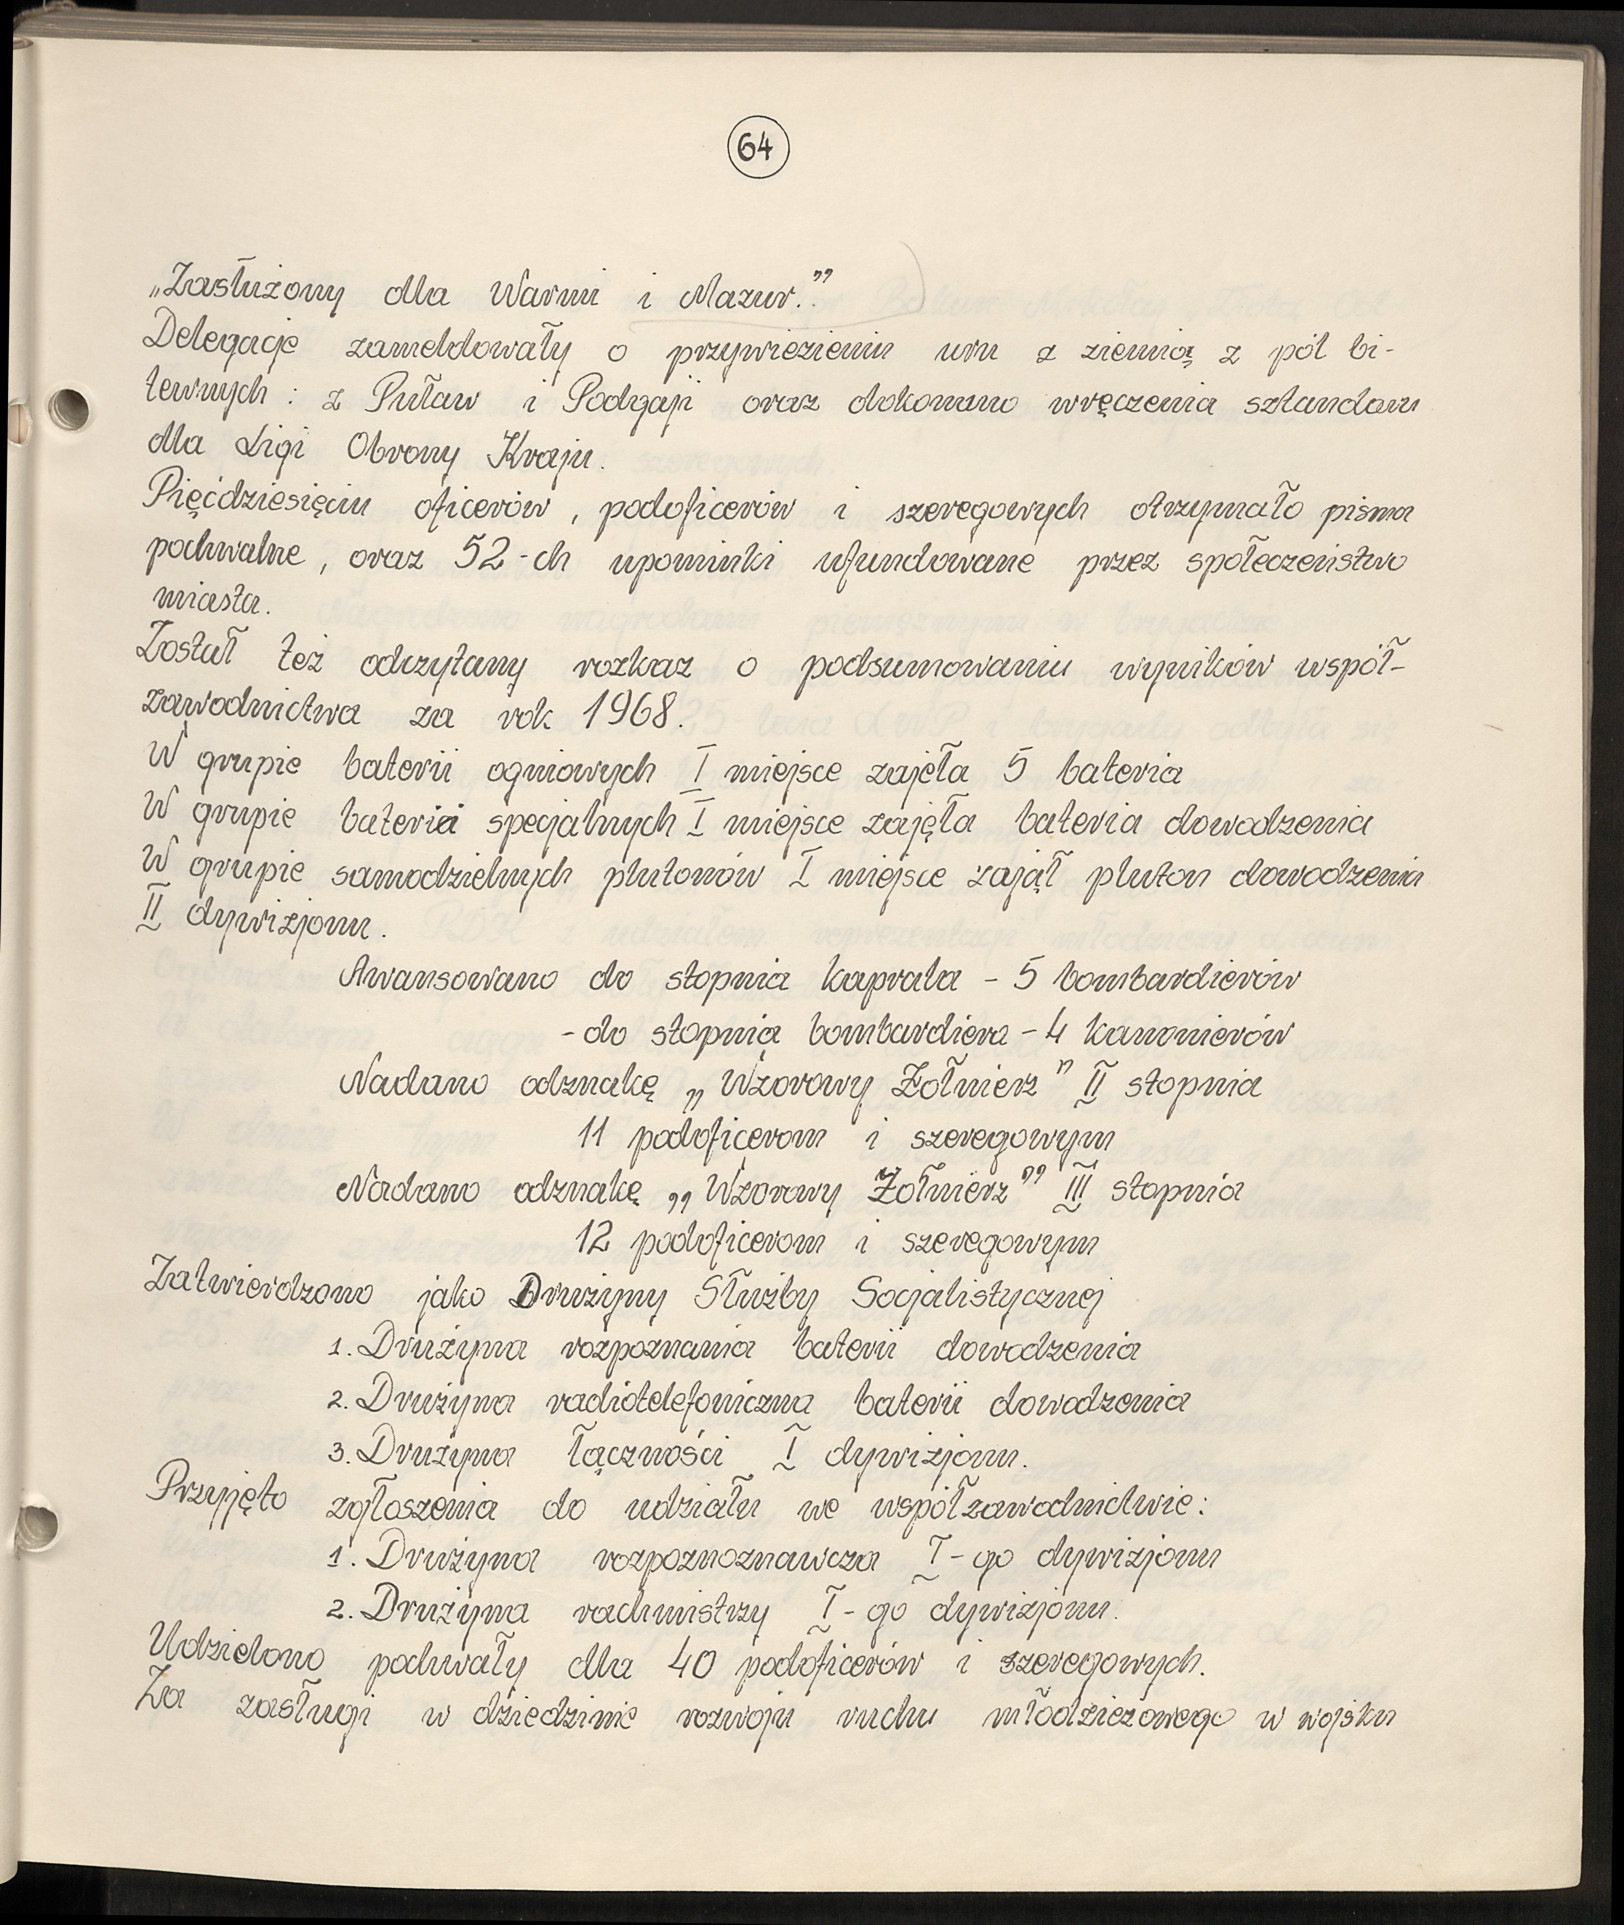 64
„Zasłużony dla Warmi i Mazur.”
Delegacje zameldowały o przywiezieniu urn z ziemią z pól bi-
tewnych : z Puław i Podgaji oraz dokonano wręczenia sztandaru
dla Ligi Obrony Kraju.
Pięćdziesięciu oficerów, podoficerów i szeregowych otrzymało pisma
pochwalne, oraz 52-ch upominki ufundowane przez społeczeństwo
miasta.
Został też odczytany rozkaz o podsumowaniu wyników współ-
zawodnictwa za rok 1968.
W grupie baterii ogniowych I miejsce zajęła 5 bateria
W grupie baterii specjalnych I miejsce zajęła bateria dowodzenia
W grupie samodzielnych plutonów I miejsce zajął pluton dowodzenia
II dywizjonu.
Awansowano do stopnia kaprala - 5 bombardierów
- do stopnia bombardiera - 4 kanonierów
Nadano odznakę „Wzorowy Żołnierz” II stopnia
11 podoficerom i szeregowym
Nadano odznakę „Wzorowy Żołnierz” III stopnia
12 podoficerom i szeregowym
Zatwierdzono jako Drużyny Służby Socjalistycznej
1. Drużyna rozpoznania baterii dowodzenia
2. Drużyna radiotelefoniczna baterii dowodzenia
3. Drużyna łączności I dywizjonu.
Przyjęto zgłoszenia do udziału we współzawodnictwie:
1. Drużyna rozpoznoznawcza I-go dywizjonu
2. Drużyna rachmistrzy I-go dywizjonu.
Udzielono pochwały dla 40 podoficerów i szeregowych.
Za zasługi w dziedzinie rozwoju ruchu młodzieżowego w wojsku